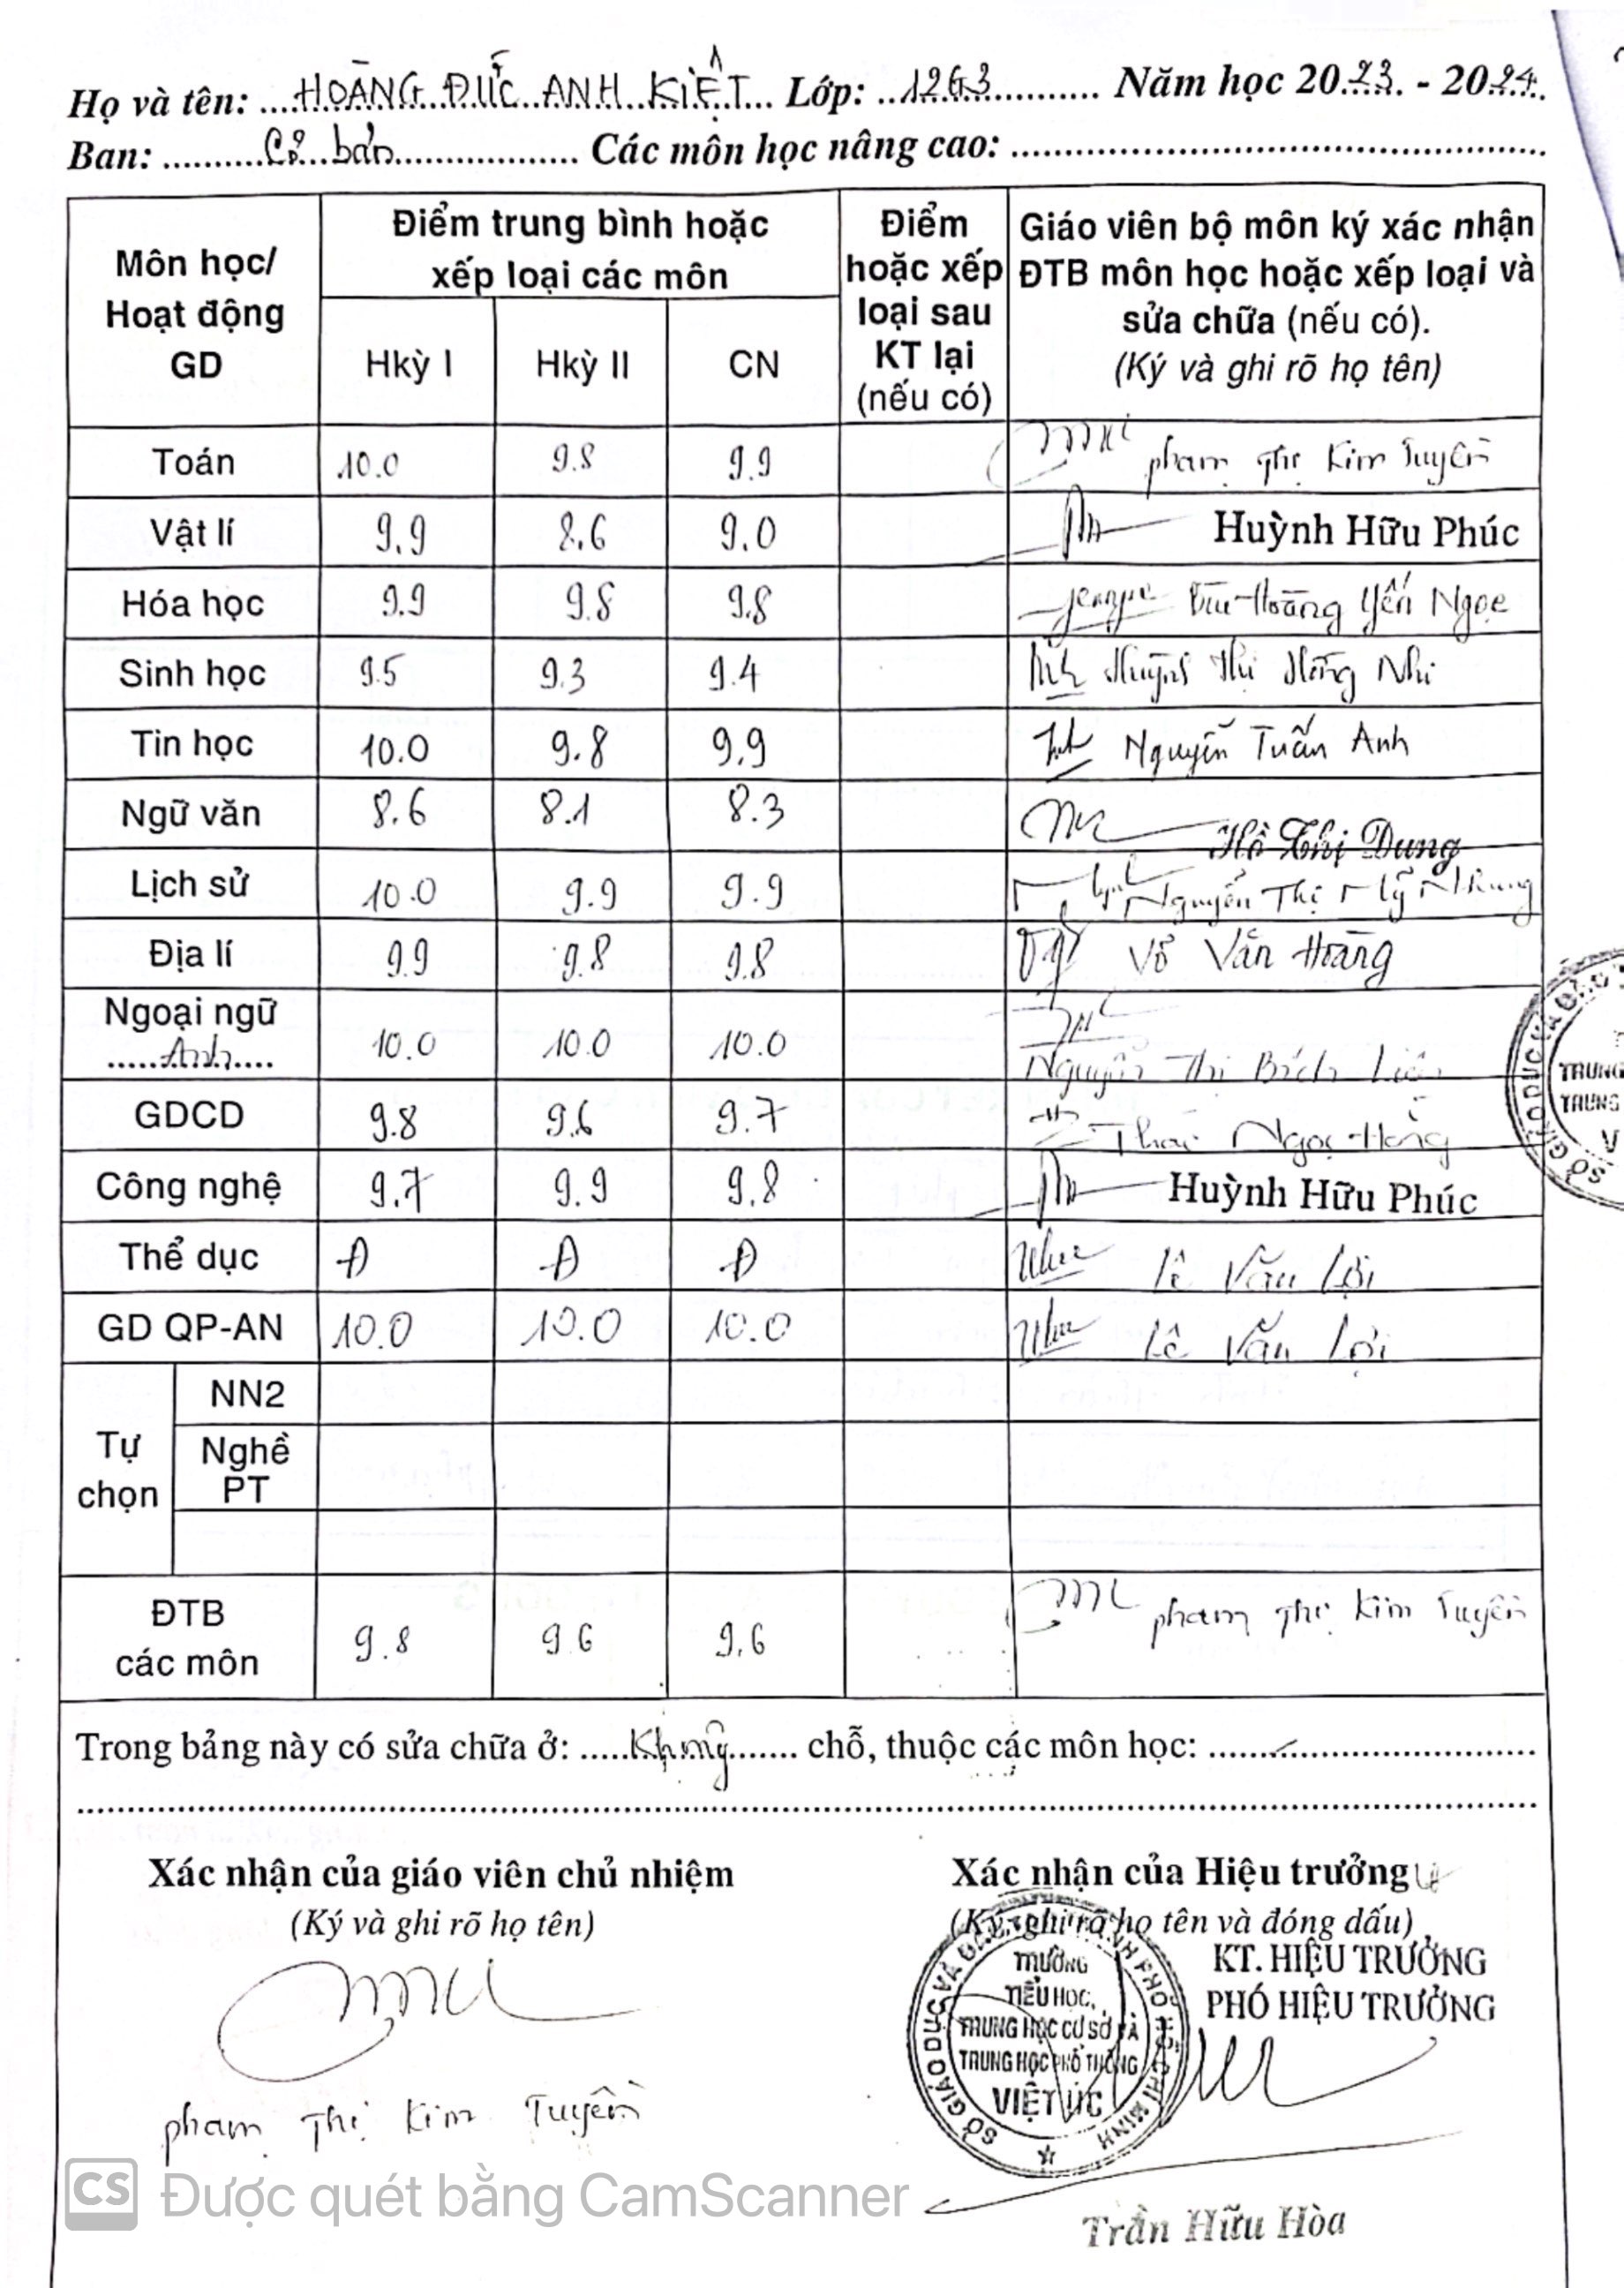 Họ và tên: HOÀNG ĐỨC ANH KIỆT Lớp: 12G3 Năm học 2023 - 2024
Ban: Cơ bản Các môn học nâng cao:
Môn học/ Hoạt động GD
Điểm trung bình hoặc xếp loại các môn
Hkỳ I Hkỳ II CN
Điểm hoặc xếp loại sau KT lại (nếu có)
Giáo viên bộ môn ký xác nhận ĐTB môn học hoặc xếp loại và sửa chữa (nếu có). (Ký và ghi rõ họ tên)
Toán 10.0 9.8 9.9 Phạm Thị Kim Tuyền
Vật lí 9.9 8.6 9.0 Huỳnh Hữu Phúc
Hóa học 9.9 9.8 9.8 Hoàng Yến Ngọc
Sinh học 9.5 9.3 9.4 Huỳnh Thị Hồng Nhi
Tin học 10.0 9.8 9.9 Nguyễn Tuấn Anh
Ngữ văn 8.6 8.1 8.3 Hồ Thị Dung
Lịch sử 10.0 9.9 9.9 Nguyễn Thị Mỹ Nhung
Địa lí 9.9 9.8 9.8 Võ Văn Hoàng
Ngoại ngữ Anh 10.0 10.0 10.0 Nguyễn Thị Bích Liên
GDCD 9.8 9.6 9.7 Ngọc Hồng
Công nghệ 9.7 9.9 9.8 Huỳnh Hữu Phúc
Thể dục Đ Đ Đ Lê Văn Lợi
GD QP-AN 10.0 10.0 10.0 Lê Văn Lợi
Tự chọn
NN2
Nghề PT
ĐTB các môn 9.8 9.6 9.6 Phạm Thị Kim Tuyền
Trong bảng này có sửa chữa ở: không chỗ, thuộc các môn học:
Xác nhận của giáo viên chủ nhiệm
(Ký và ghi rõ họ tên)
Phạm Thị Kim Tuyền
Xác nhận của Hiệu trưởng
(Ký, ghi rõ họ tên và đóng dấu)
KT. HIỆU TRƯỞNG
PHÓ HIỆU TRƯỞNG
SỞ GIÁO DỤC VÀ ĐÀO TẠO THÀNH PHỐ HỒ CHÍ MINH
TRƯỜNG
TIỂU HỌC,
TRUNG HỌC CƠ SỞ VÀ
TRUNG HỌC PHỔ THÔNG
VIỆT ÚC
Trần Hữu Hòa
CS Được quét bằng CamScanner